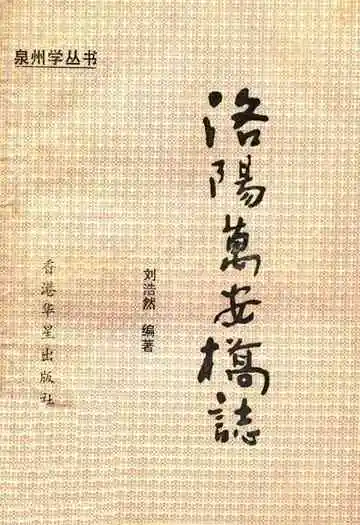 泉州学丛书
洛陽萬安橋誌
刘浩然 编著
香港华星出版社